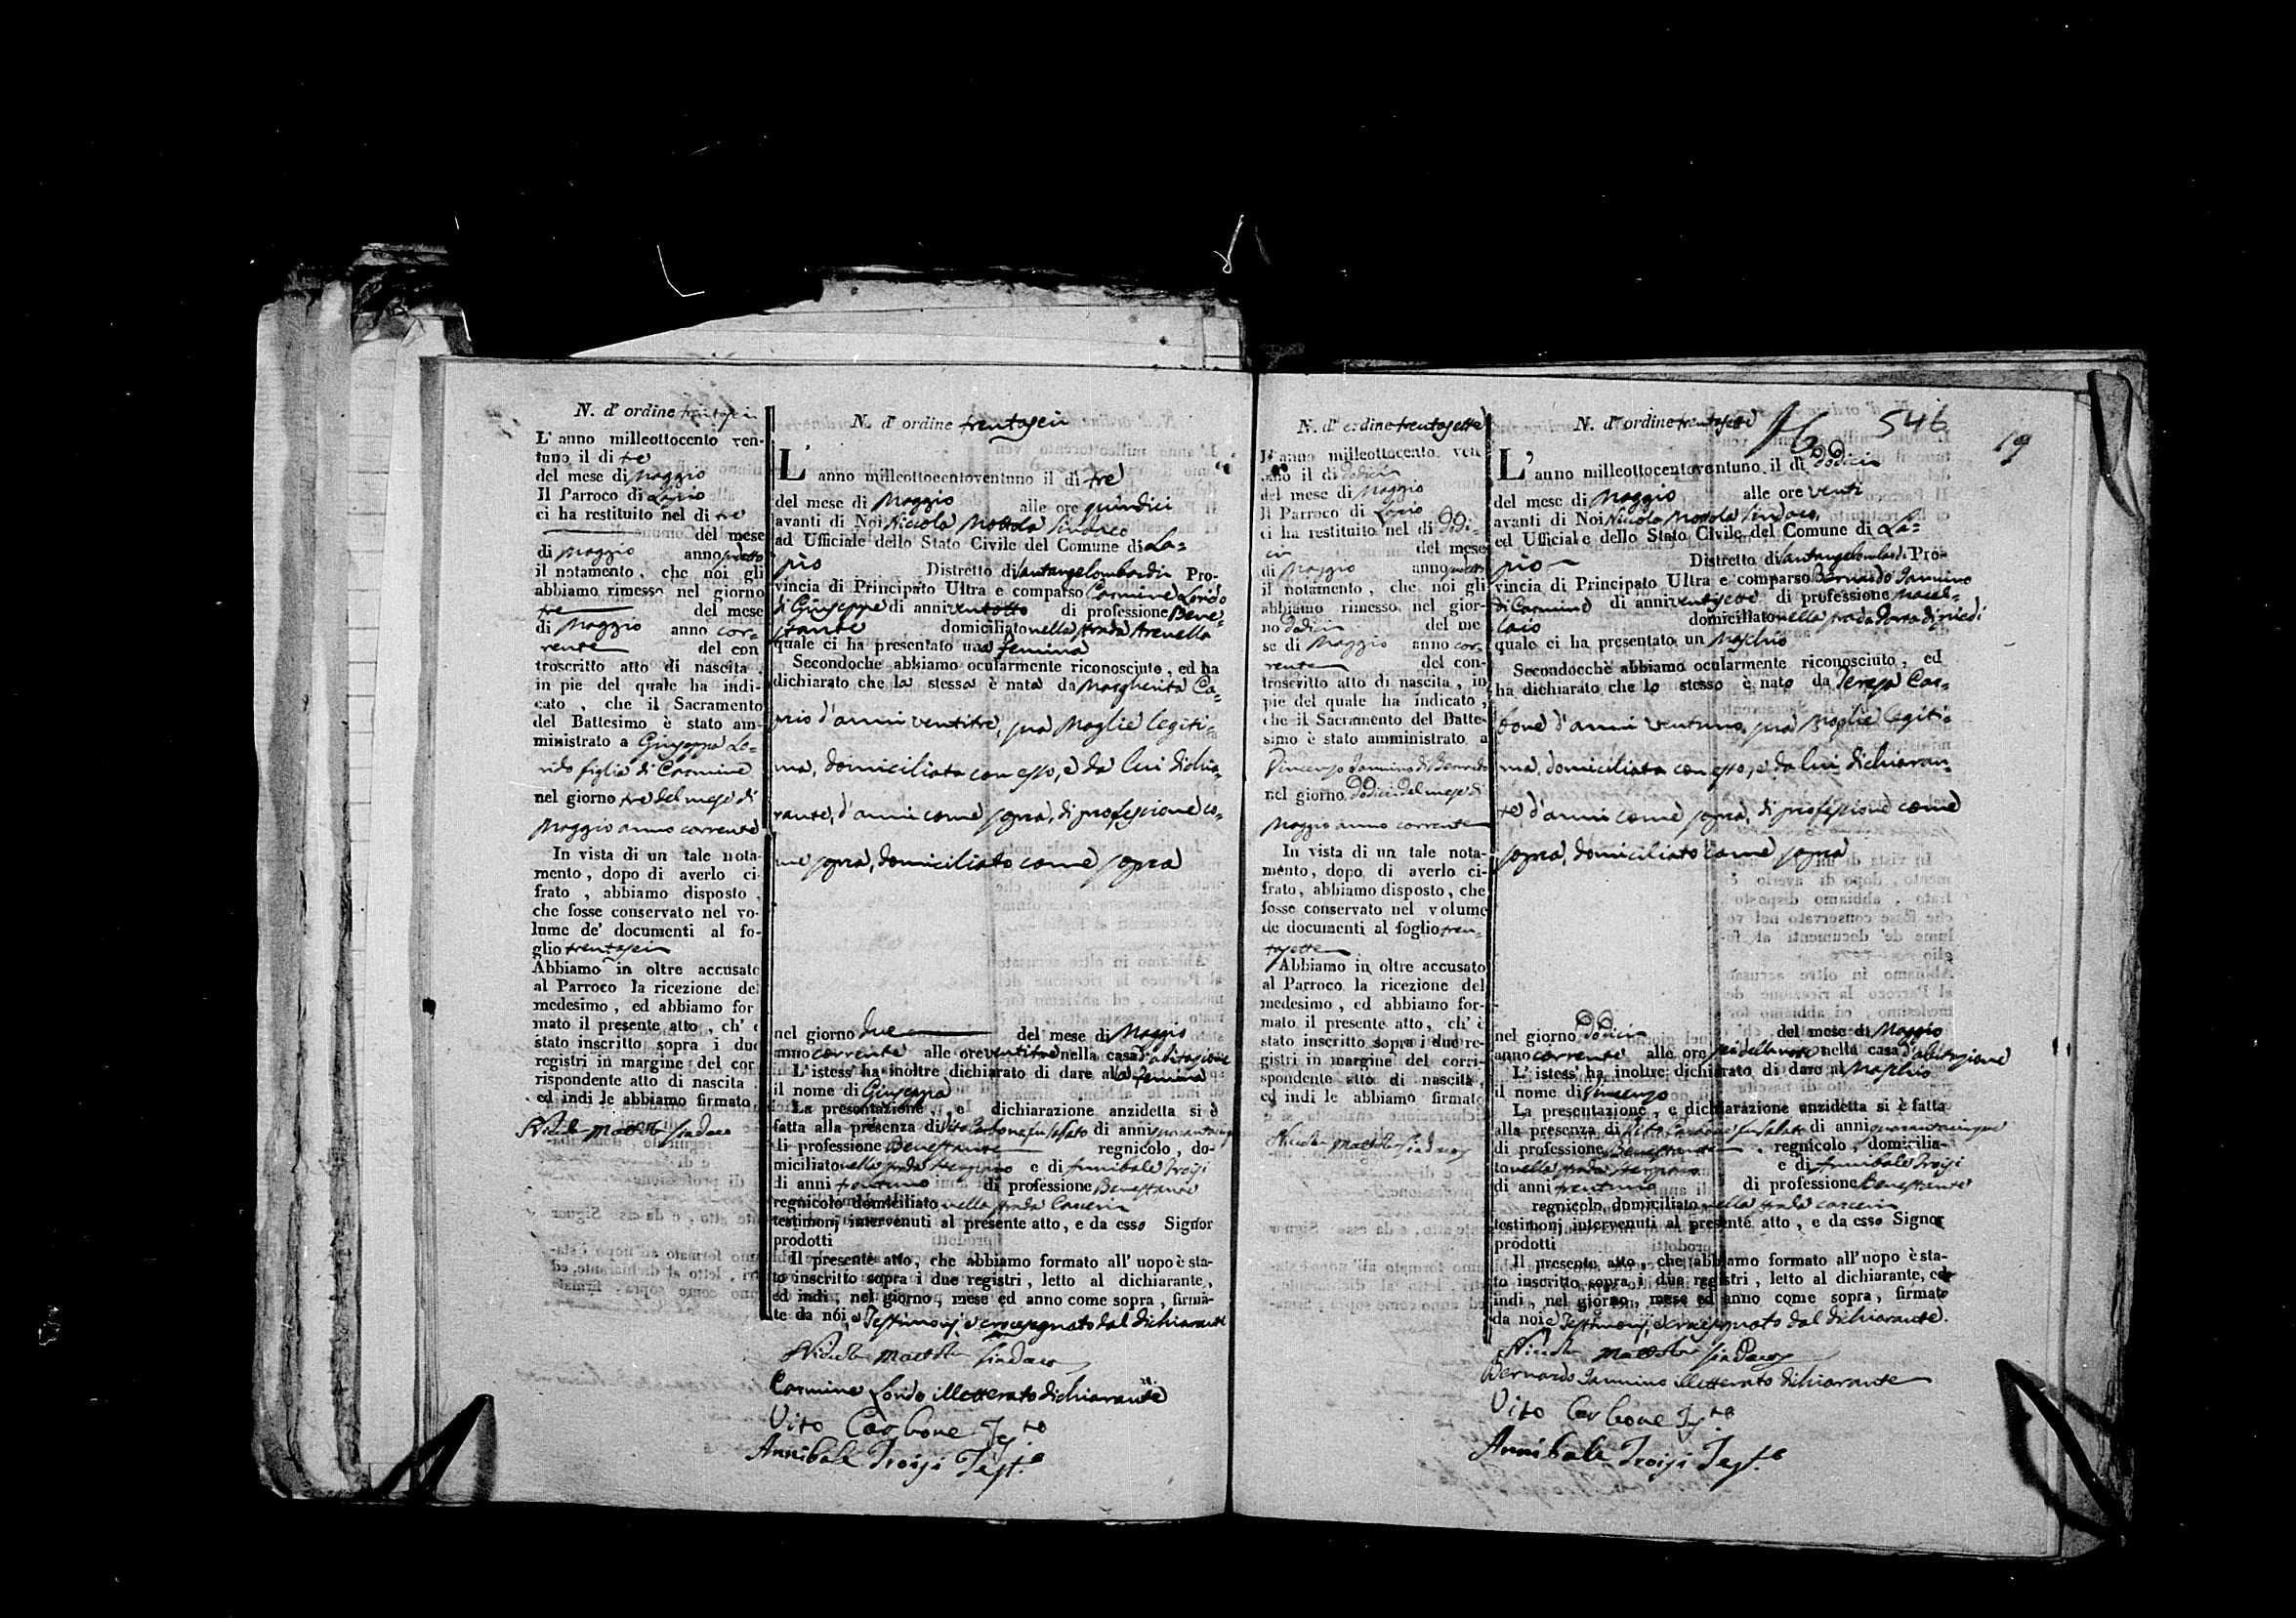 N. d' ordine trentasei
L' anno milleottocento ven-
tuno il di tre
del mese di Maggio
Il Parroco di Lapio
ci ha restituito nel di tre
del mese
di Maggio anno
il notamento, che noi gli
abbiamo rimesso nel giorno
tre del mese
di Maggio anno cor-
rente del con
troscritto atto di nascita,
in pie del quale ha indi-
cato, che il Sacramento
del Battesimo è stato am-
ministrato a Giuseppa Lo-
rido figlia di Carmine
nel giorno tre del mese di
Maggio anno corrente
In vista di un tale nota-
mento, dopo di averlo ci-
frato, abbiamo disposto,
che fosse conservato nel vo-
lume de' documenti al fo-
glio trentasei
Abbiamo in oltre accusato
al Parroco la ricezione del
medesimo, ed abbiamo for
mato il presente atto, ch' è
stato inscritto sopra i due
registri in margine del cor
rispondente atto di nascita
ed indi le abbiamo firmato
Nicola Mottola Sindaco
N. d' ordine trentasei
L' anno milleottocentoventuno il di tre
del mese di Maggio alle ore quindici
avanti di Noi Niccola Mottola Sindaco
ad Uffiziale dello Stato Civile del Comune di La=
pio Distretto di Santangelombardi Pro-
vincia di Principato Ultra e comparso Carmine Lorido
di Giuseppe di anni ventotto di professione Bene=
stante domiciliato nella strada Arenella
quale ci ha presentato una femina
Secondoche abbiamo ocularmente riconosciuto, ed ha
dichiarato che la stessa è nata da Margherita Ca=
prio d'anni ventitre, sua Moglie legiti=
ma, domiciliata con esso, e da lui dichia=
rante, d'anni come sopra, di professione co=
me sopra, domiciliato come sopra
nel giorno due del mese di Maggio
anno corrente alle ore ventitre nella casa d'abitazione
L'istess' ha inoltre dichiarato di dare alla femina
il nome di Giuseppa
La presentazione, e dichiarazione anzidetta si è
fatta alla presenza di Vito Carbone fu Sabato di anni quarantacinque
di professione Benestante regnicolo, do-
miciliato nella strada e di Annibale Troisi
di anni trentuno di professione Benestante
regnicolo domiciliato nella strada Carceri
testimonj intervenuti al presente atto, e da esso Signor
prodotti
Il presente atto, che abbiamo formato all' uopo è sta-
to inscritto sopra i due registri, letto al dichiarante,
ed indi, nel giorno, mese ed anno come sopra, firma-
te da noi, e Testimonj, e crocesegnato dal dichiarante
Nicola Mottola Sindaco
Carmine Lorido illetterato dichiarante
Vito Carbone Testo
Annibale Troisi Test.e
N. d' ordine trentasette
L'anno milleottocento ven
tuno il di dodici
del mese di Maggio
Il Parroco di Lapio
ci ha restituito nel di dodi-
ci del mese
di Maggio anno
il notamento, che noi gli
abbiamo rimesso nel gior-
no dodici del me
se di Maggio anno cor-
rente del con-
troscritto atto di nascita, in
pie del quale ha indicato,
che il Sacramento del Batte-
simo è stato amministrato a
Vincenzo Iannino di Bernardo
nel giorno dodici del mese di
Maggio anno corrente
In vista di un tale nota-
mento, dopo di averlo ci-
frato, abbiamo disposto, che
fosse conservato nel volume
de documenti al foglio tren=
tasette
Abbiamo in oltre accusato
al Parroco la ricezione del
medesimo, ed abbiamo for-
mato il presente atto, ch' è
stato inscritto sopra i due re-
gistri in margine del corri-
spondente atto di nascita,
ed indi le abbiamo firmato
Nicola Mottola Sindaco
N. d' ordine trentasette
546
19
L' anno milleottocentoventuno il di dodici
del mese di Maggio alle ore venti
avanti di Noi Niccola Mottola Sindaco,
ed Uffiziale dello Stato Civile del Comune di La=
pio Distretto di Santangelombardi Pro-
vincia di Principato Ultra e comparso Bernardo Iannino
di Carmine di anni ventisette di professione Macel=
laio domiciliato nella strada
quale ci ha presentato un Maschio
Secondocchè abbiamo ocularmente riconosciuto, ed
ha dichiarato che lo stesso è nato da Teresa Car=
bone d'anni ventuno, sua Moglie legiti=
ma, domiciliata con esso, e da lui dichiaran=
te, d'anni come sopra, di professione come
sopra, domiciliato come sopra
nel giorno dodici del mese di Maggio
anno corrente alle ore sei della notte nella casa d'abitazione
L' istess' ha inoltre dichiarato di dare al Maschio
il nome di Vincenzo
La presentazione, e dichiarazione anzidetta si è fatta
alla presenza di Vito Carbone fu Sabato di anni quarantacinque
di professione Benestante, regnicolo, domicilia-
to nella strada e di Annibale Troisi
di anni trentuno di professione Benestante
regnicolo, domiciliato nella strada carceri
testimonj intervenuti al presente atto, e da esso Signor
prodotti
Il presente atto, che abbiamo formato all'uopo è sta-
to inscritto sopra i due registri, letto al dichiarante, ed
indi, nel giorno, mese ed anno come sopra, firmato
da noi e Testimonj, e crocesegnato dal dichiarante.
Nicola Mottola Sindaco
Bernardo Iannino illetterato dichiarante
Vito Carbone Testo
Annibale Troisi Test.e